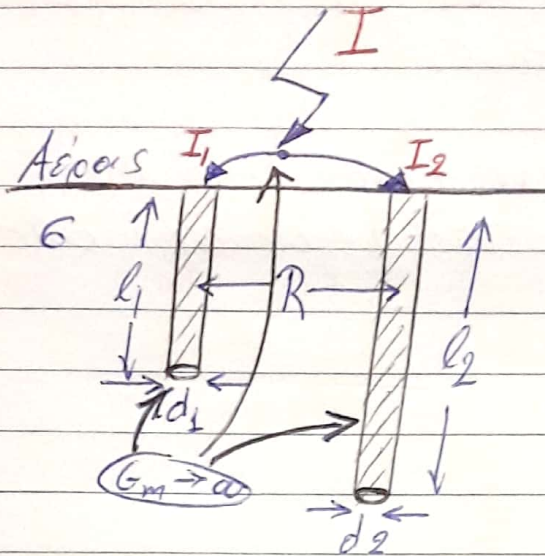 I
Αέρας I₁ I₂
σ
l₁ R l₂
d₁
σₘ→∞
d₂